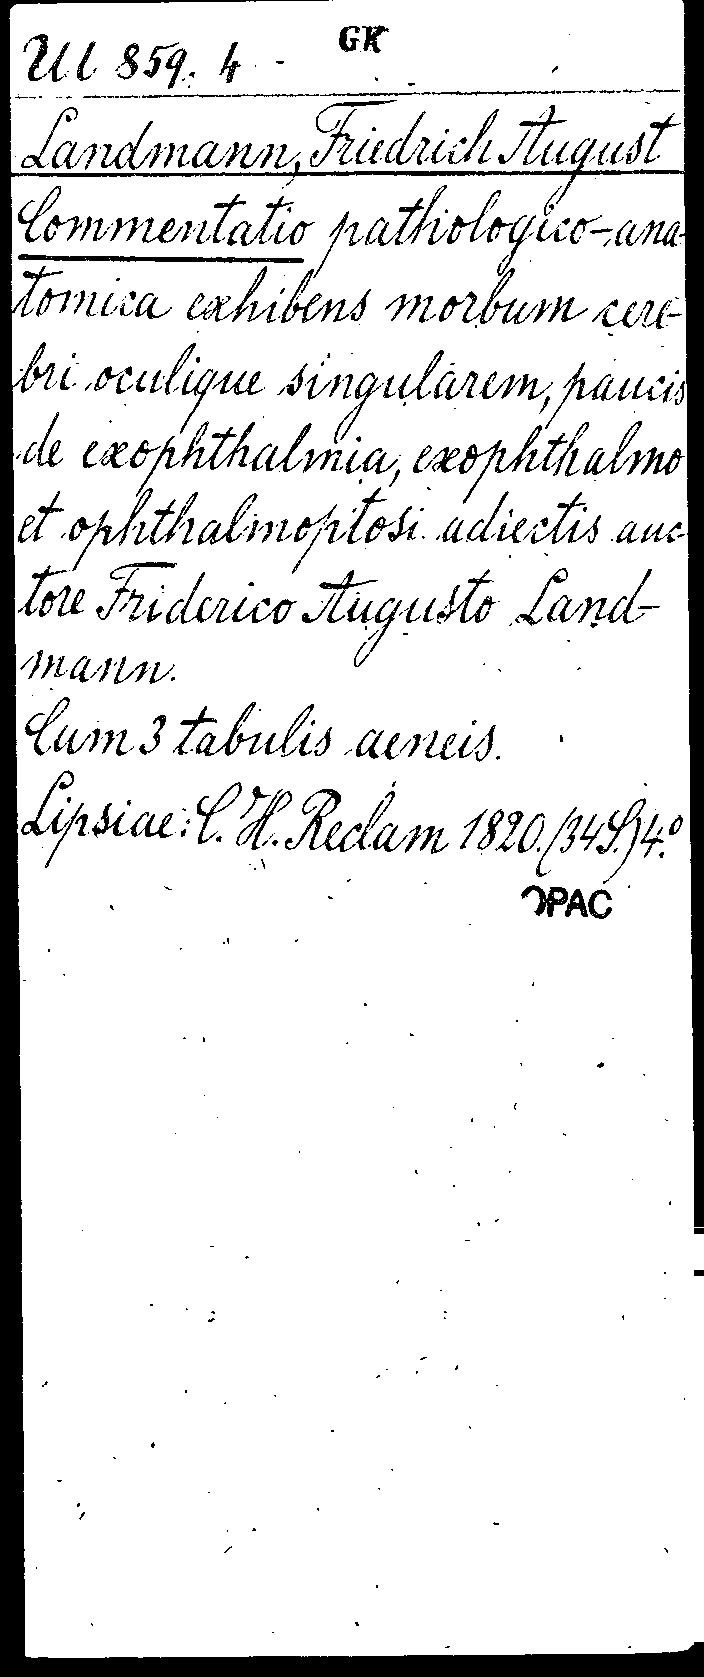 Ul 859. 4 GK
Landmann, Friedrich August
Commentatio pathologico-ana-
tomica exhibens morbum cere-
bri oculique singularem, paucis
de exophthalmia, exophthalmo
et ophthalmoptosi adiectis auc-
tore Friderico Augusto Land-
mann.
Cum 3 tabulis aeneis.
Lipsiae: C. H. Reclam 1820. (34 S.) 4.º
OPAC